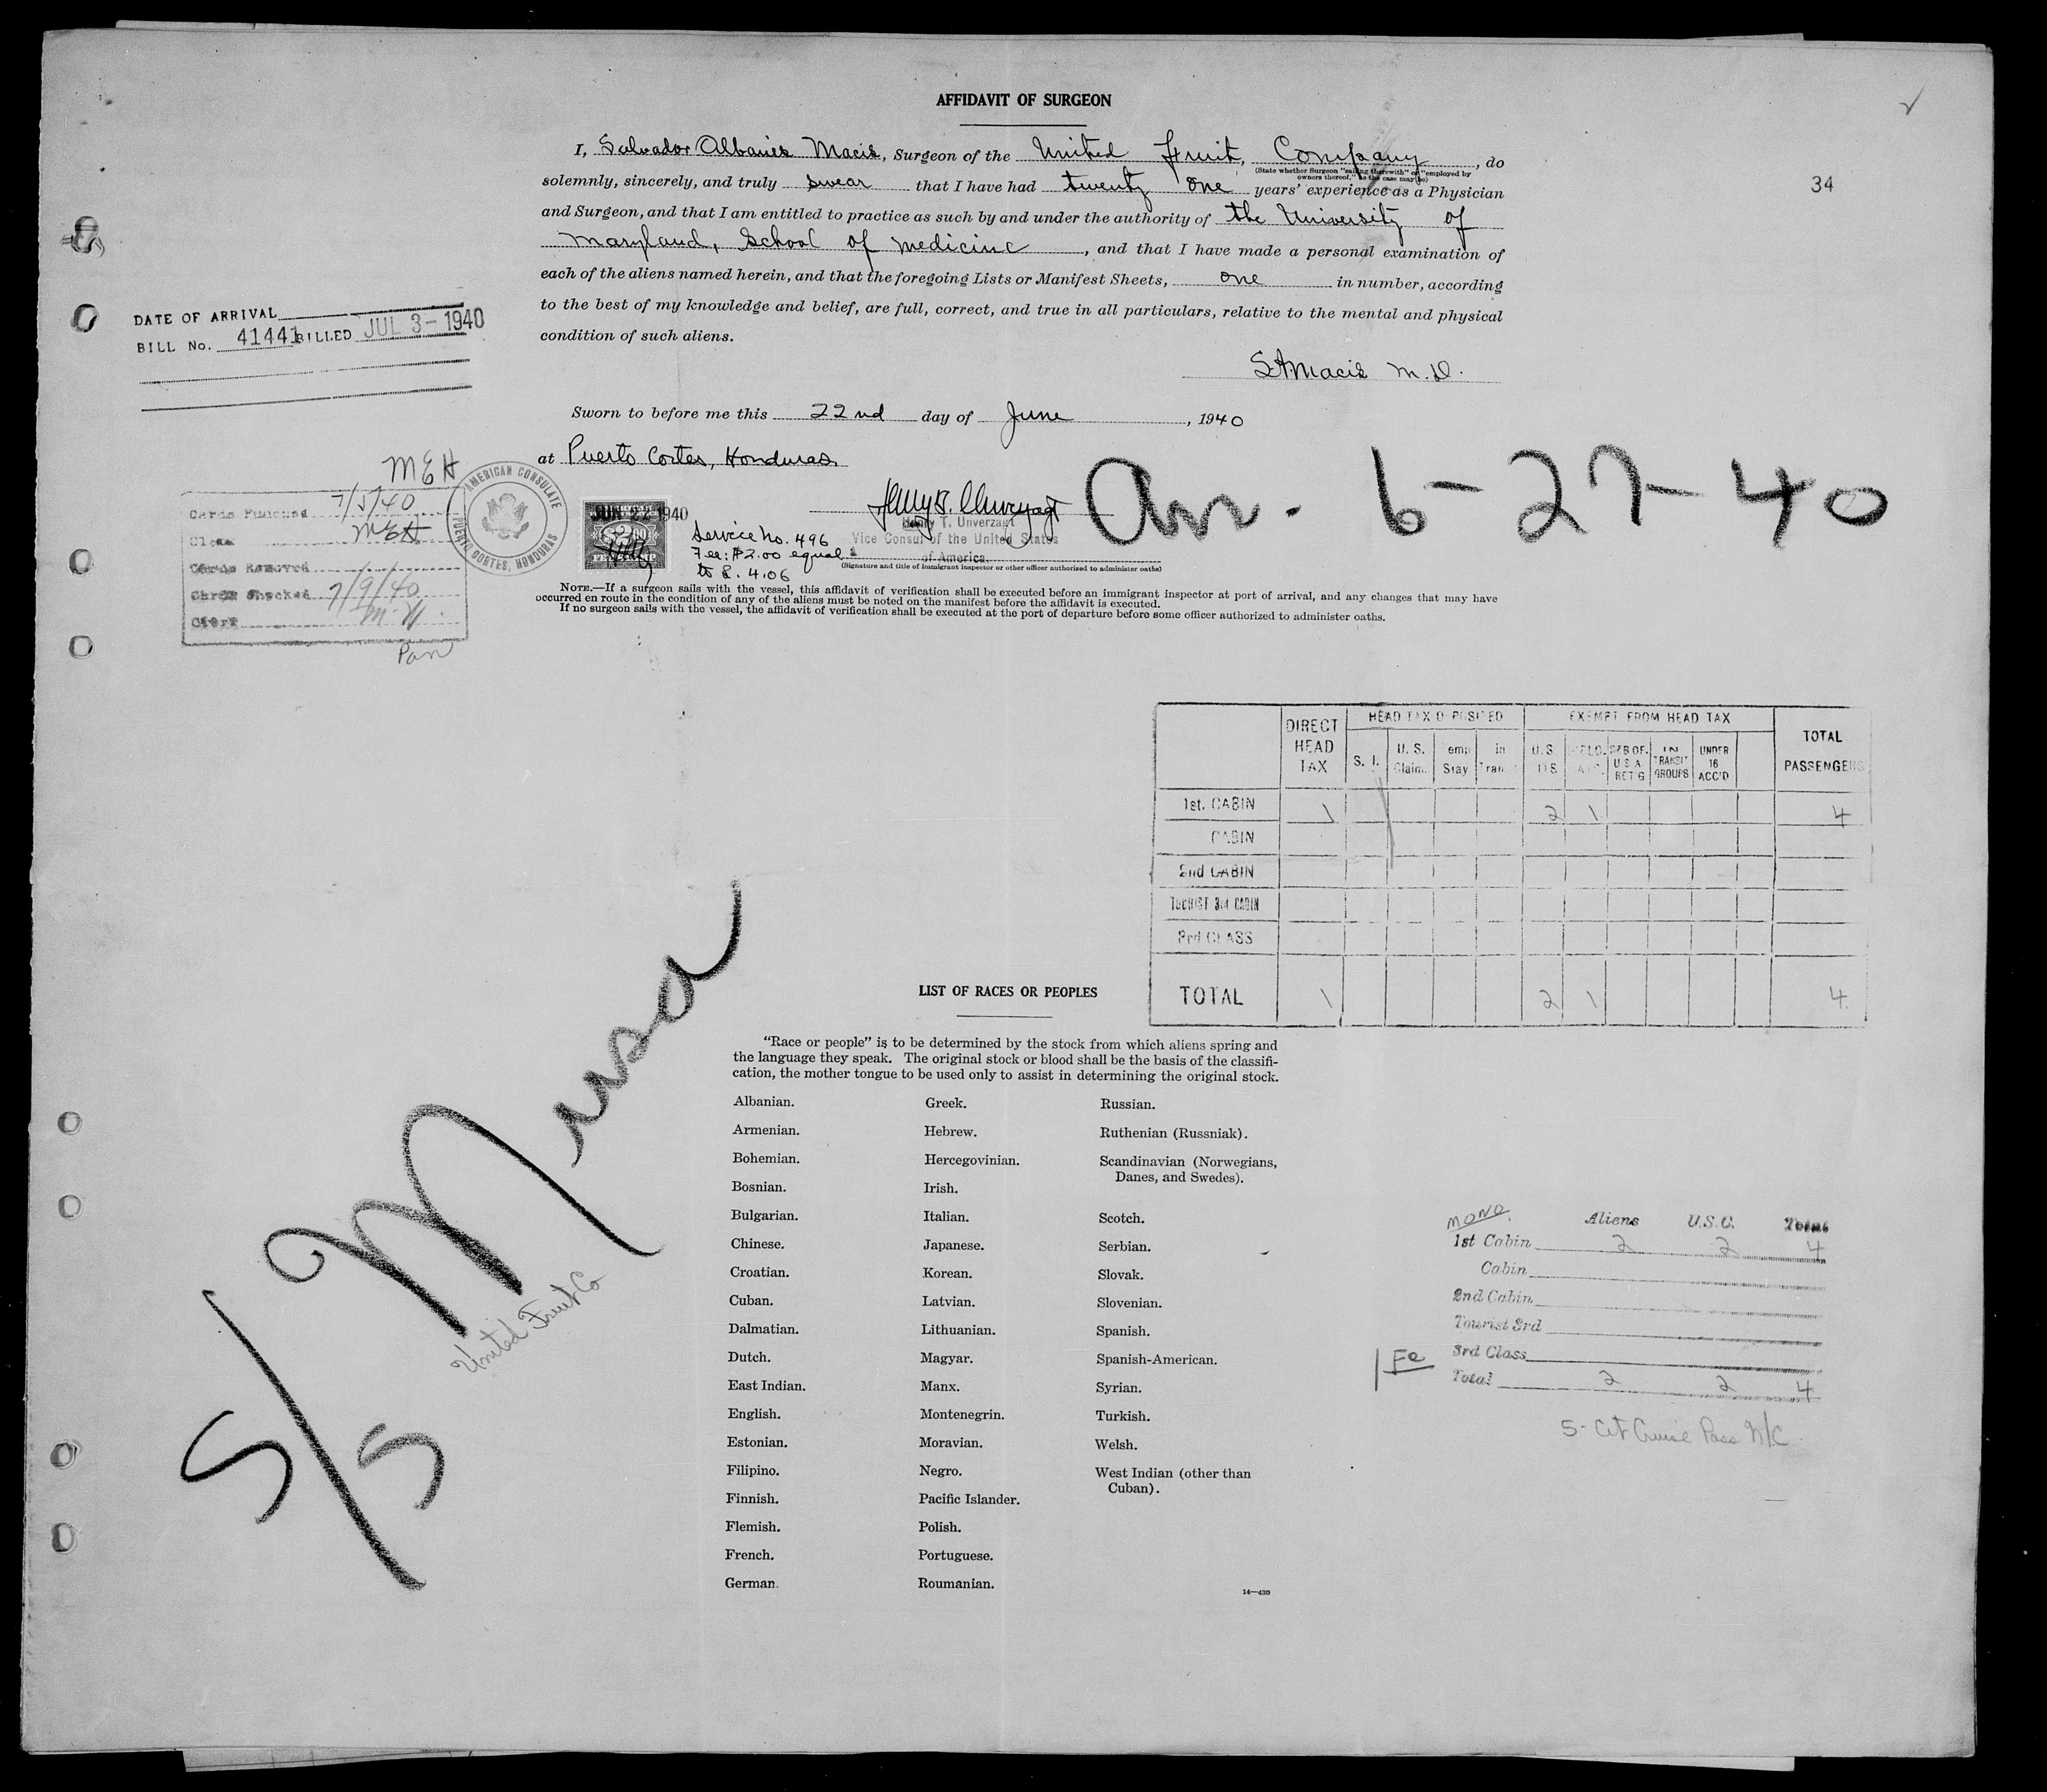 AFFIDAVIT OF SURGEON
34
I, Salvador Albanies Macis, Surgeon of the United Fruit, Company, do
(State whether Surgeon "sailing therewith" or "employed by
owners thereof," as the case may be)
solemnly, sincerely, and truly swear that I have had twenty one years' experience as a Physician
and Surgeon, and that I am entitled to practice as such by and under the authority of the University of
Maryland, School of Medicine, and that I have made a personal examination of
each of the aliens named herein, and that the foregoing Lists or Manifest Sheets, one in number, according
to the best of my knowledge and belief, are full, correct, and true in all particulars, relative to the mental and physical
condition of such aliens.
DATE OF ARRIVAL
BILL No. 41441 BILLED JUL 3-1940
SAMacis M.D.
Sworn to before me this 22nd day of June, 1940
at Puerto Cortes, Honduras
AMERICAN CONSULATE
PUERTO CORTES, HONDURAS
JUN 22 1940
Service No. 496
Fee: $2.00 equal
to 8. 4.06
Henry T. Unverzagt
Vice Consul of the United States
of America.
(Signature and title of immigrant inspector or other officer authorized to administer oaths)
Arr. 6-27-40
MEH
Cards Punched 7/5/40
Clerk MEH
Cards Removed
Cards Checked 7/9/40
Clerk M.H.
Pan
NOTE.—If a surgeon sails with the vessel, this affidavit of verification shall be executed before an immigrant inspector at port of arrival, and any changes that may have
occurred en route in the condition of any of the aliens must be noted on the manifest before the affidavit is executed.
If no surgeon sails with the vessel, the affidavit of verification shall be executed at the port of departure before some officer authorized to administer oaths.
DIRECT HEAD TAX
HEAD TAX D POSITED
EXEMPT FROM HEAD TAX
TOTAL PASSENGERS
S. I. U. S. Claim. Temp Stay In Trans U.S. UNDER 16 ACC'D
IN TRANSIT GROUPS
1st. CABIN 1 2 1 4
CABIN
2nd CABIN
TOURIST 3rd CABIN
3rd CLASS
TOTAL 1 2 1 4
S/S Musa
United Fruit Co
LIST OF RACES OR PEOPLES
"Race or people" is to be determined by the stock from which aliens spring and
the language they speak. The original stock or blood shall be the basis of the classifi-
cation, the mother tongue to be used only to assist in determining the original stock.
Albanian.
Armenian.
Bohemian.
Bosnian.
Bulgarian.
Chinese.
Croatian.
Cuban.
Dalmatian.
Dutch.
East Indian.
English.
Estonian.
Filipino.
Finnish.
Flemish.
French.
German.
Greek.
Hebrew.
Hercegovinian.
Irish.
Italian.
Japanese.
Korean.
Latvian.
Lithuanian.
Magyar.
Manx.
Montenegrin.
Moravian.
Negro.
Pacific Islander.
Polish.
Portuguese.
Roumanian.
Russian.
Ruthenian (Russniak).
Scandinavian (Norwegians,
Danes, and Swedes).
Scotch.
Serbian.
Slovak.
Slovenian.
Spanish.
Spanish-American.
Syrian.
Turkish.
Welsh.
West Indian (other than
Cuban).
14—430
MONO. Aliens U.S.C. Total
1st Cabin 2 2 4
Cabin
2nd Cabin
Tourist 3rd
3rd Class
Total 2 2 4
Fe
5- Cit Cruise Pass N/C